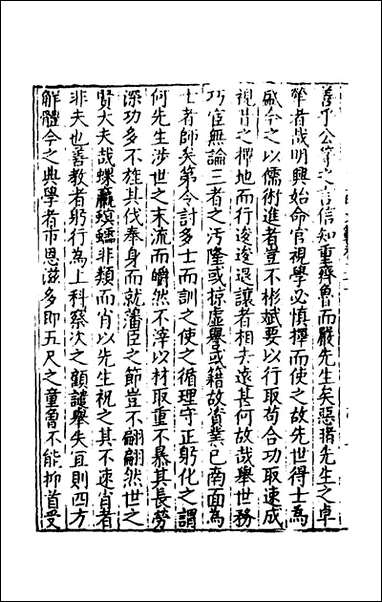 善乎公等之言信知重齊魯而嚴先生矣惡揩先生之卓
犖者哉明興始命官視學必慎擇而使之故先世得士為
盛今之以儒術進者豈不彬斌要以行取苟合功取速成
視昔之擇地而行逡逡退讓者相去遠甚何故哉舉世務
巧宦無論三者之汚隆或掠虛譽或籍故資業已南面為
士者師矣第令計多士而訓之使之循理守正躬化之謂
何先生涉世之末流而皭然不滓以材取重不暴其長勞
深功多不旌其伐奉身而就藩臣之節豈不翩翩然世之
賢大夫哉螟蠃螟蠕非類而肖以先生祝之其不速肖者
非夫也善教者躬行為上科察次之顧譴舉失宜則四方
解體今之典學者市恩滋多即五尺之童魯不能抑首受